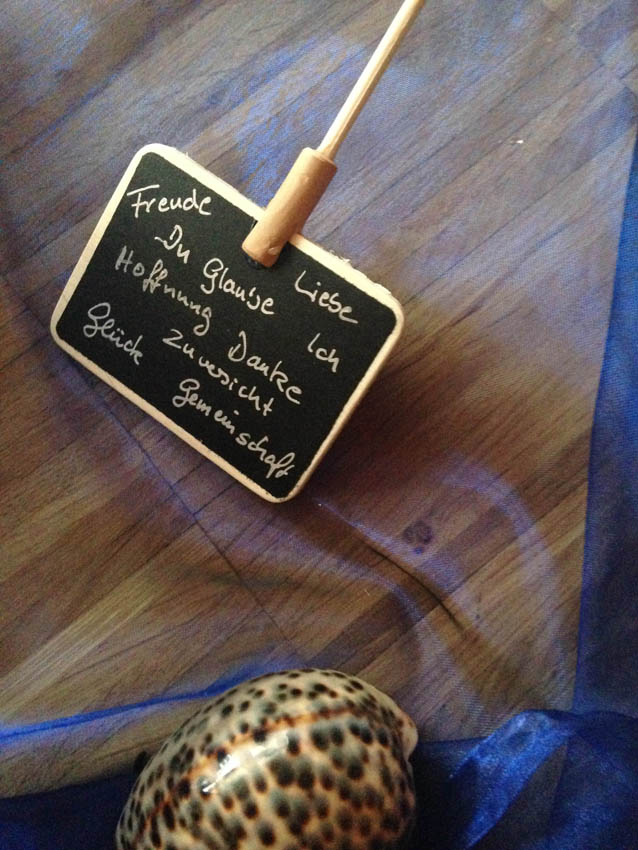 Freude
Liebe
Du Glaube
Ich
Hoffnung Danke
Zuversicht
Glück
Gemeinschaft